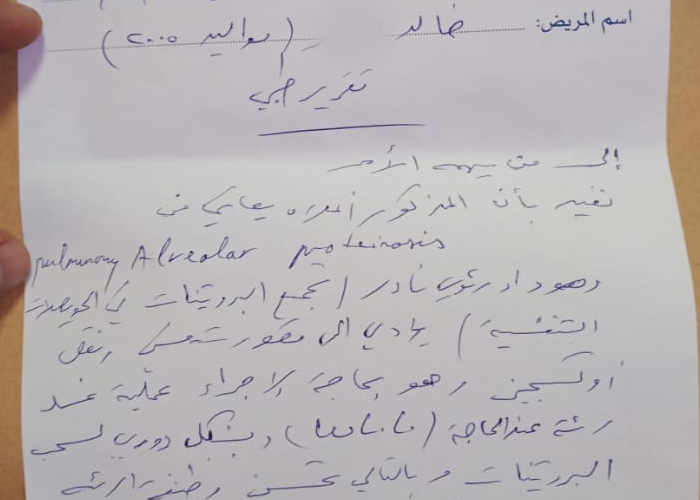 اسم المريض: خالد (مواليد ٢٠٠٥)
تقرير طبي
إلى من يهمه الأمر
نفيد بأن المذكور أعلاه يعاني من
pulmonary Alveolar proteinosis
وهو داء رئوي نادر (تجمع البروتينات في الحويصلات
التنفسية) يؤدي الى قصور تنفسي ونقص
أوكسجين وهو بحاجة لإجراء عملية غسل
رئة عند الحاجة وبشكل دوري لسحب
البروتينات وبالتالي تحسن وظيفة الرئة